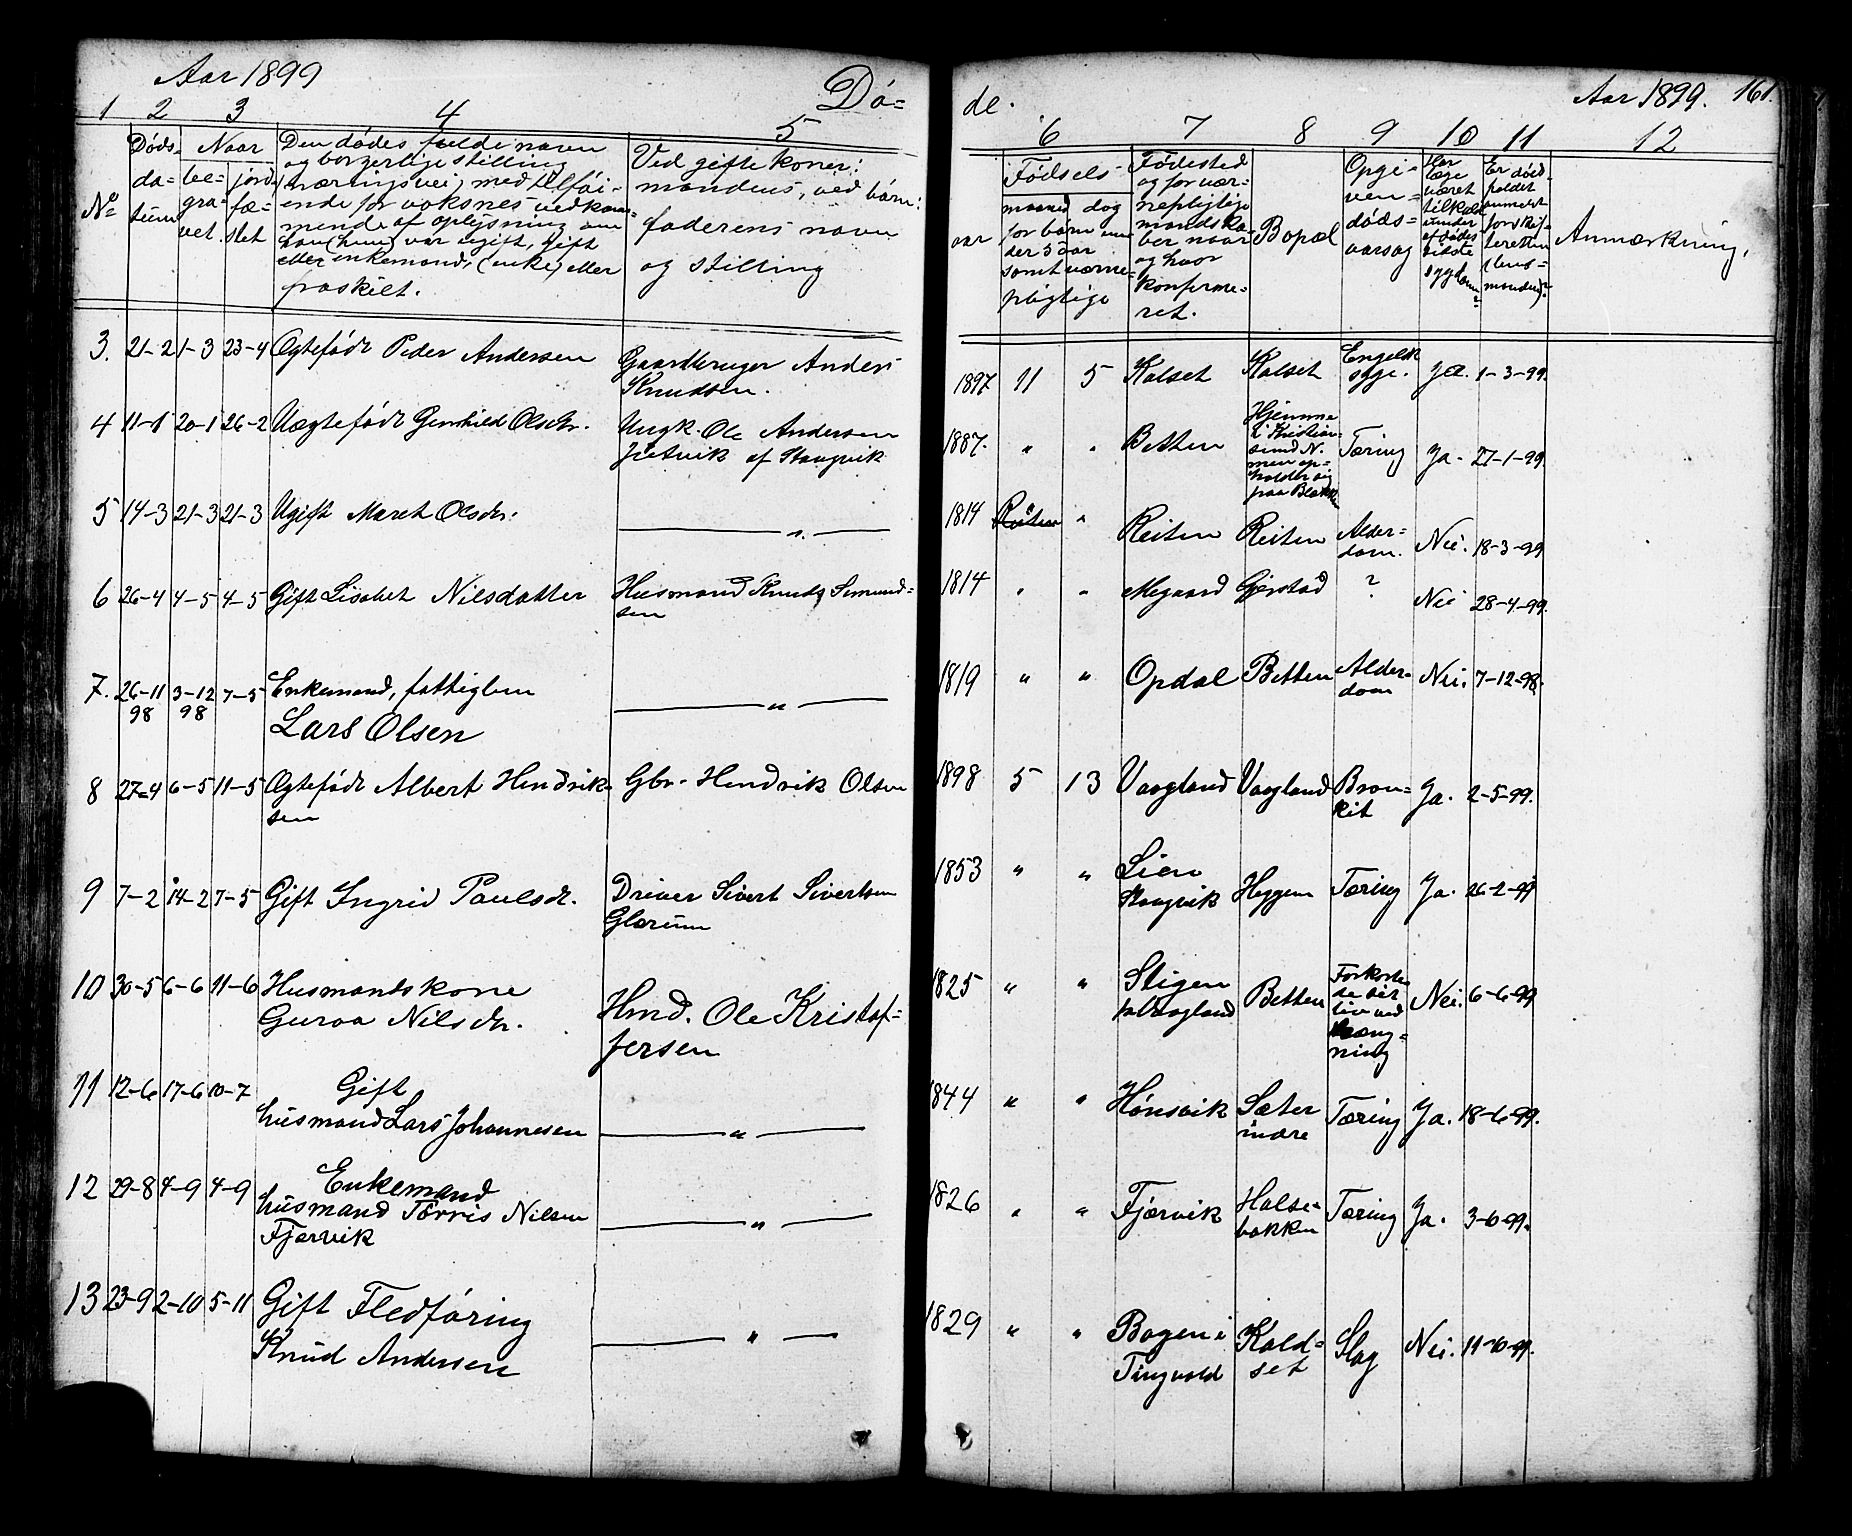 Aar 1899
Dö=
de.
Aar 1899. 161.
1 2 3 4 5
6 7 8 9 10 11 12
No
Døds-
da-
tum
Naar
be-
gra-
vet.
jord
fæ-
stet
Den dødes fulde navn
og borgerlige stilling
(næringsvei) med tilföi-
ende for voksnes vedkom-
mende af oplysning om
han (hun) var ugift, gift
eller enkemand, (enke) eller
fraskilt.
Ved gifte koner:
mandens, ved børn:
faderens navn
og stilling
Fødsels-
aar
maaned dag
for børn un-
der 5 aar
samt værne-
pligtige
Fødested
og for vær-
nepligtige
mandska-
ber naar
og hvor
konferme-
ret.
Bopæl
Opgi-
ven-
døds-
aarsag
Har
læge
været
tilkaldt
under
afdødes
sidste
sygdom?
Er døds-
faldet
anmeldt
for skif-
teretten
(lens-
manden)?
Anmærkning.
3. 21-2 1-3 23-4 Ægtefödt Peder Andersen
Gaardbruger Anders
Knudsen.
1897 11 5 Kalset Kalset Engelsk
syge. Ja. 1-3-99.
4 11-1 20-1 26-2 Uægtefödt Gunhild Olsdr.
Ungk. Ole Andersen
Jutvik af Stangvik
1887. " " Betten
Hjemme
i Kristian-
sund N.
men op-
holder sig
paa
Tæring Ja. 27-1-99.
5 14-3 21-3 21-3 Ugift Maret Olsdr.
— " —
1814 " Reiten Reiten Alder-
dom. Nei. 18-3-99
6 26-4 4-5 4-5 Gift Lisabet Nilsdatter
Husmand Knud Simund=
sen
1814 " " Megaard Gjerstad ? Nei 28-4-99.
7. 26-11
98 3-12
98 7-5 Enkemand, fattiglem
Lars Olsen
— " —
1819 " " Opdal Betten Alder-
dom Nei. 7-12-98.
8 27-4 6-5 11-5 Ægtefödt Albert Hendrik-
sen
Gbr. Hendrik Olsen
1898 5 13 Vaagland Vaagland Bron-
kit Ja. 2-5-99.
9 7-2 14-2 7-5 Gift Ingrid Paulsdr.
Driver Sivert Sivertsen
Glærum
1853 " " Lien
Stangvik Heggem Tæring Ja. 26-2-99
10 30-5 6-6 11-6 Husmandskone
Guroa Nilsdr.
Hmd. Ole Kristof-
fersen
1825 " " Stigen
p. Vaagland Betten Forkorte-
de sit
liv ved
hæng-
ning Nei. 6-6-99
11 12-6 17-6 10-7 Gift
husmand Lars Johannesen
— " —
1844 " " Hönsvik Sæter
indre Tæring Ja. 18-6-99.
12 29-8 4-9 4-9 Enkemand
husmand Törris Nilsen
Fjærvik
— " —
1826 " " Fjærvik Halse-
bakken Tæring Ja. 3-6-99.
13 23-9 2-10 5-11 Gift Fledföring
Knud Andersen
— " —
1829 " " Bogen i
Tingvold Kald-
set Slag Nei. 11-10-99.